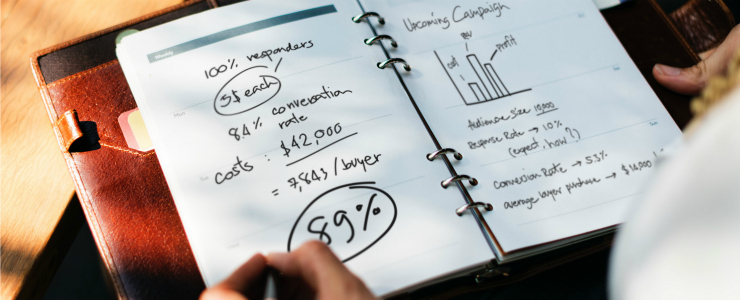 Weekly
100% responders
5$ each
84% conversation
rate
costs : $42,000
= 7,843/buyer
89%
Upcoming Campaign
cost
profit
Audience size 10,000
Response Rate → 10%
(expect, how?)
Conversion Rate → 5.3%
average buyer purchase → $14,000